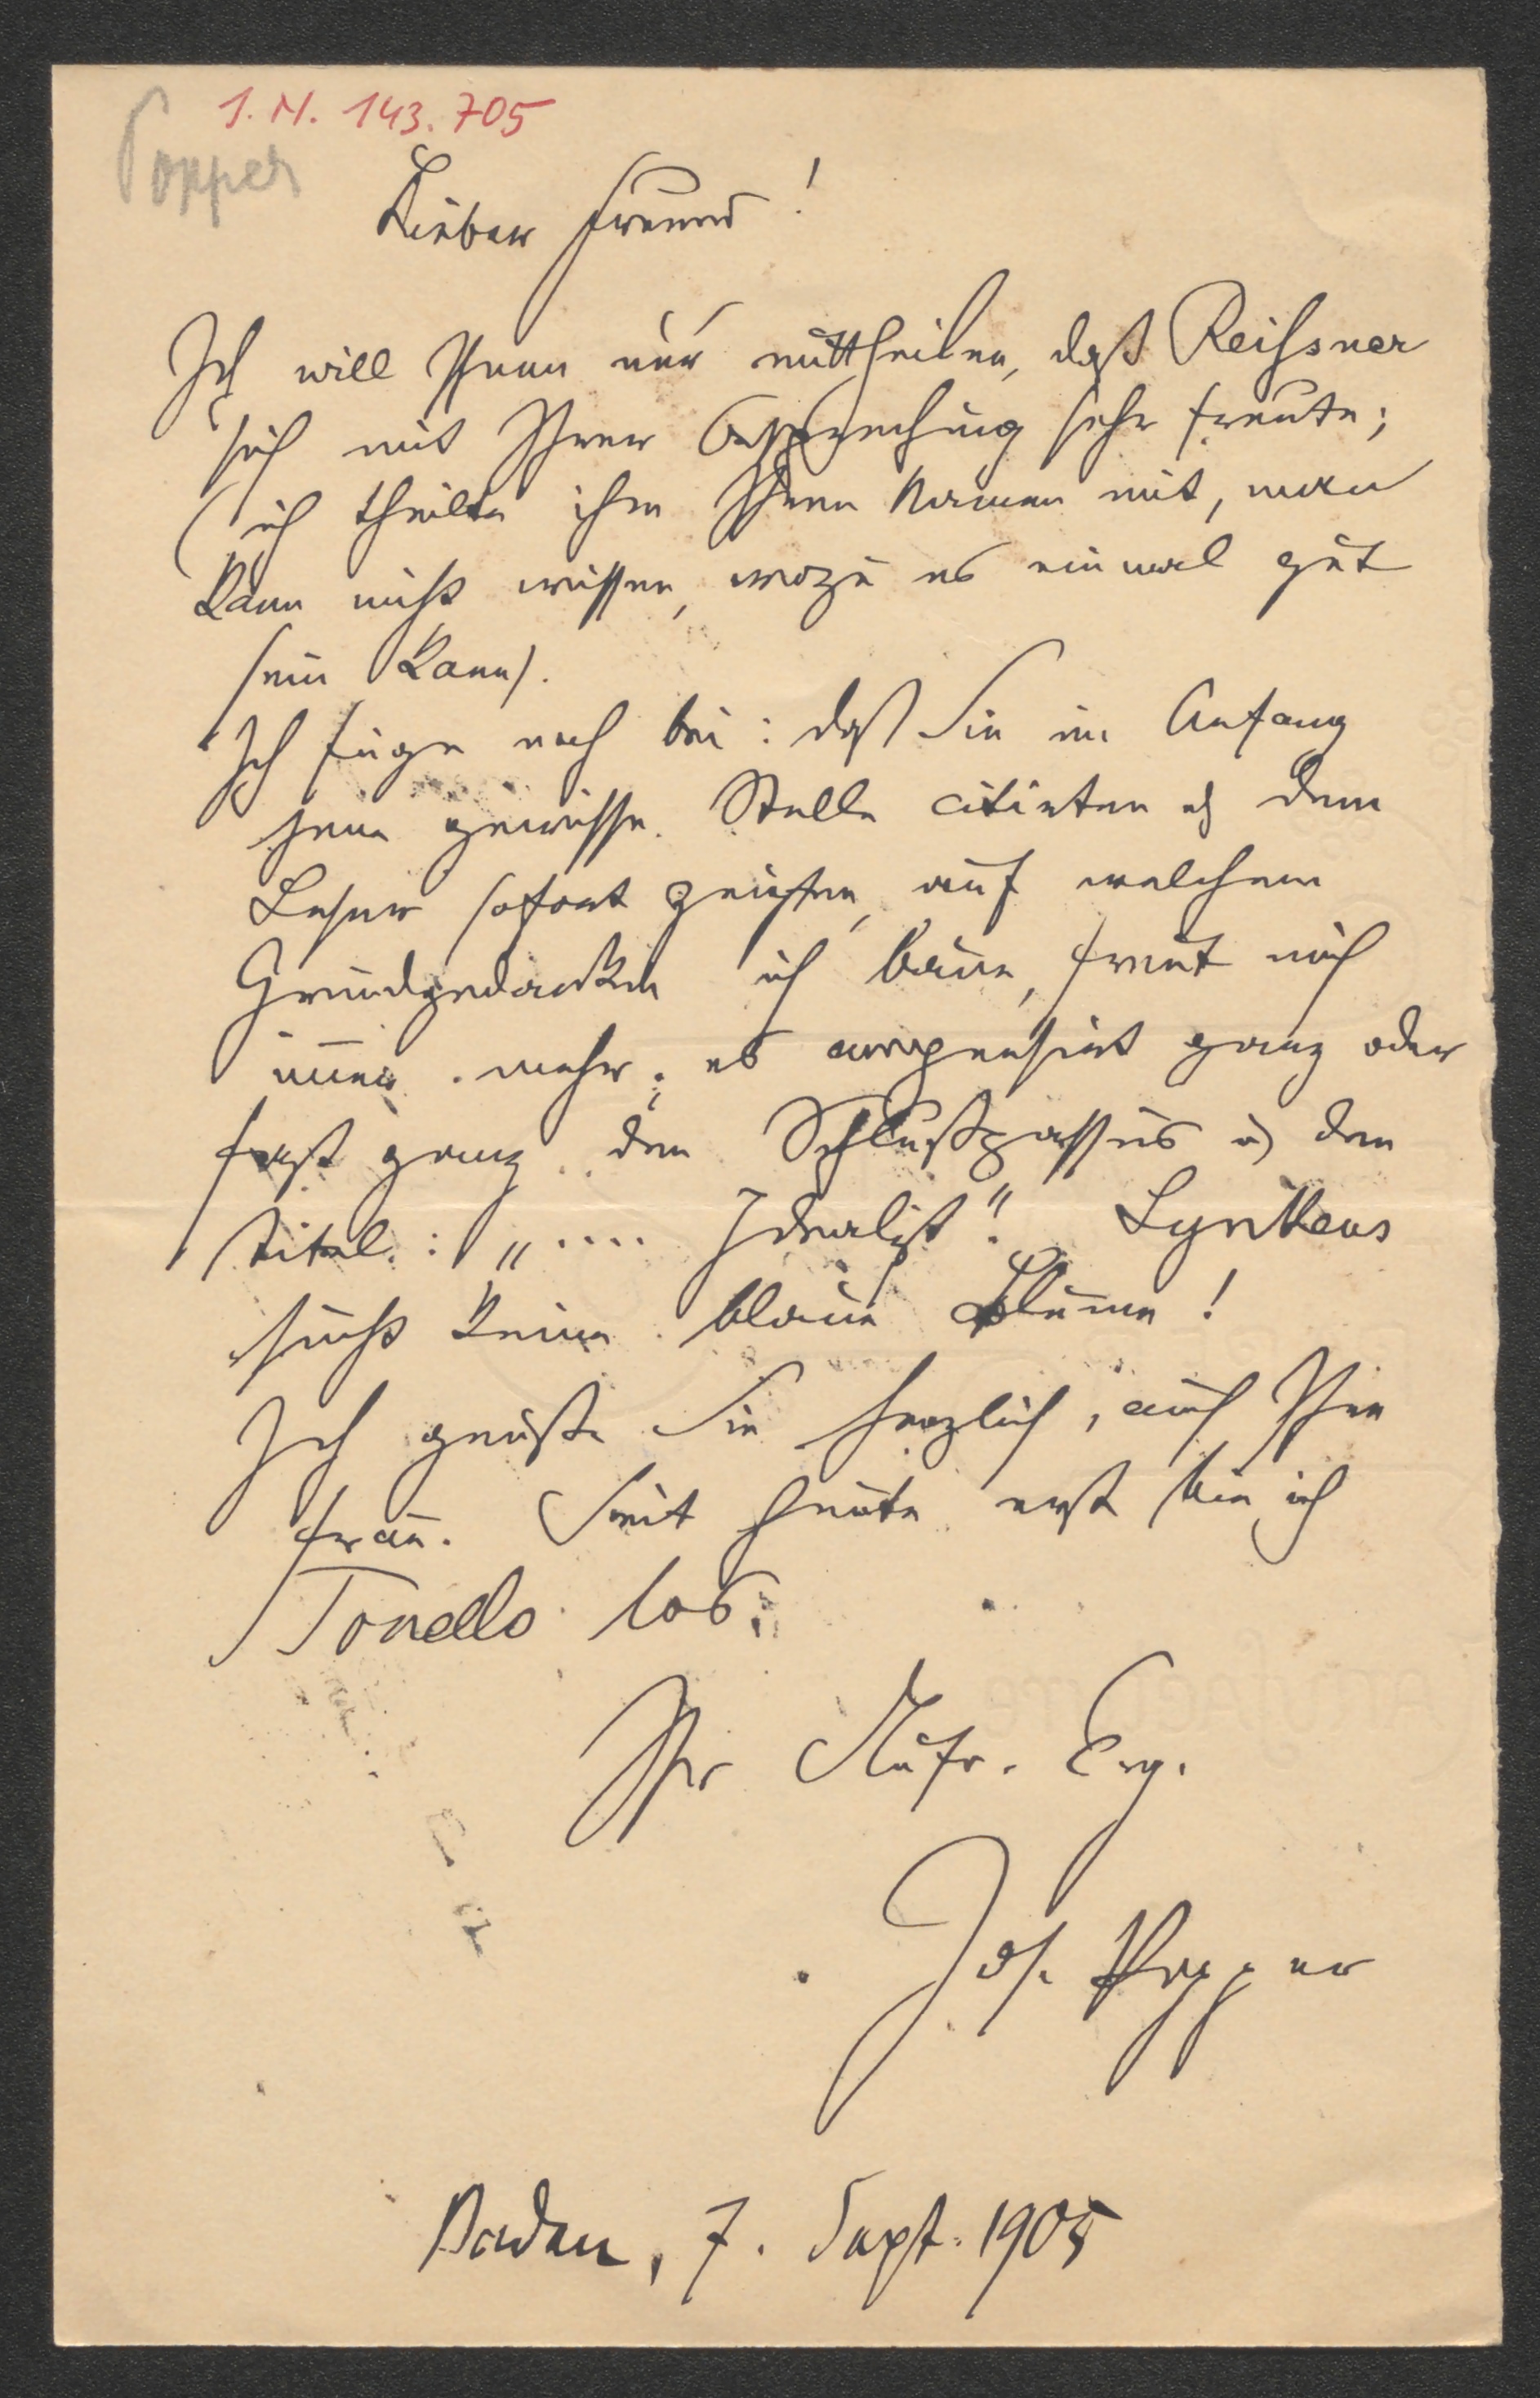 I. N. 143.705
Popper
Lieber Freund!
Ich will Ihnen nur mittheilen, daß Reissner
sich mit Ihrer Besprechung sehr freute;
(ich theilte ihm Ihren Namen mit, man
kann nicht wissen, wozu es einmal gut
sein kann).
Ich füge noch bei: daß Sie im Anfang
jene gewisse Stelle citirten u dem
Leser sofort zeigten, auf welchem
Grundgedanken ich baue, freut mich
immer mehr; es compensirt ganz oder
fast ganz den Schlußpassus u den
Titel: „.... Idealist". Lynkeus
sucht keine blaue Blume!
Ich grüße Sie herzlich, auch Ihre
Frau. Seit heute erst bin ich
Tonello los.
Ihr Aufr. Erg.
Jos. Popper
Baden, 7. Sept. 1905